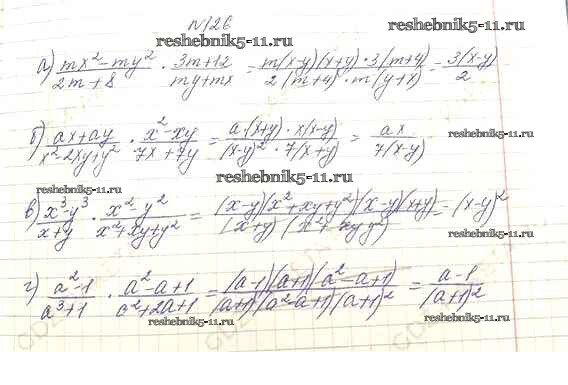 N126
reshebnik5-11.ru reshebnik5-11.ru
а) (mx² - my²)/(2m + 8) · (3m + 12)/(my + mx) = (m(x-y)(x+y) · 3(m+4))/(2(m+4) · m(y+x)) = 3(x-y)/2
б) (ax + ay)/(x² - 2xy + y²) · (x² - xy)/(7x + 7y) = (a·(x+y) · x(x-y))/((x-y)² · 7(x+y)) = ax/(7(x-y))
reshebnik5-11.ru
reshebnik5-11.ru
в) (x³ - y³)/(x + y) · (x² - y²)/(x² + xy + y²) = ((x-y)(x² + xy + y²)(x-y)(x+y))/((x+y)(x² + xy + y²)) = (x-y)²
reshebnik5-11.ru
г) (a² - 1)/(a³ + 1) · (a² - a + 1)/(a² + 2a + 1) = ((a-1)(a+1)(a² - a + 1))/((a+1)(a² - a + 1)(a+1)²) = (a-1)/(a+1)²
reshebnik5-11.ru reshebnik5-11.ru